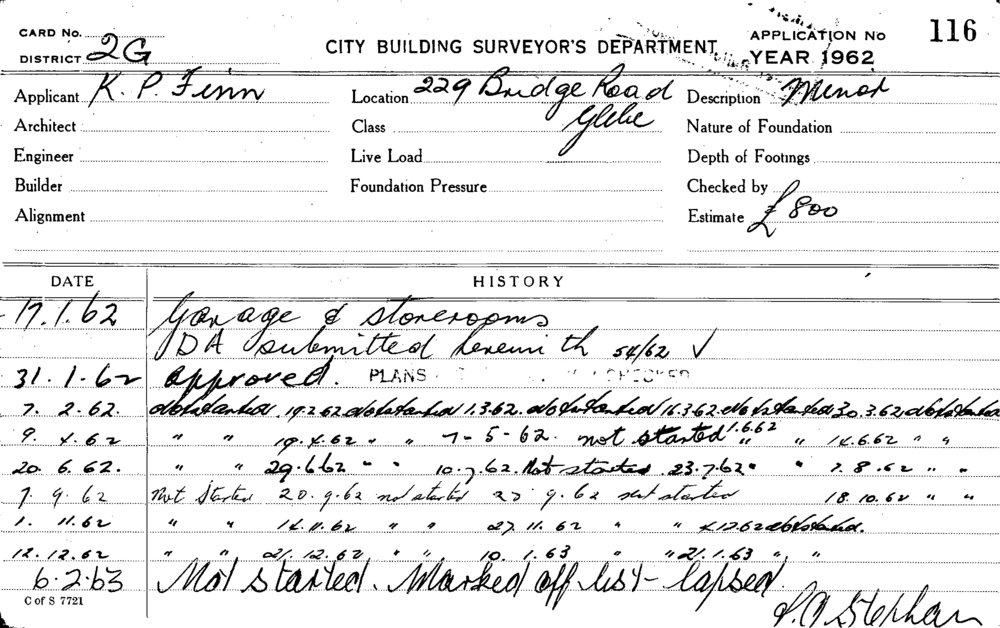 CARD No.
DISTRICT 2G
CITY BUILDING SURVEYOR'S DEPARTMENT
APPLICATION No 116
YEAR 1962
Applicant K. P. Finn
Location 229 Bridge Road
Glebe
Description Minor
Architect
Class
Nature of Foundation
Engineer
Live Load
Depth of Footings
Builder
Foundation Pressure
Checked by
Alignment
Estimate £800
DATE HISTORY
17.1.62 Garage & storerooms
DA submitted herewith 54/62 ✓
31.1.62 approved. PLANS CHECKED
7. 2.62. Not started. 19.2.62 Not started 1.3.62. Not started 16.3.62. Not started 30.3.62 Not started
9. 4.62 " " 19.4.62 " " 7-5-62. not started 1.6.62 " " 14.6.62 " "
20. 6.62. " " 29.6.62 " " 10.7.62. Not started 23.7.62 " " 7.8.62 " "
7. 9. 62 Not Started 20.9.62 not started 25.9.62 not started 18.10.62 " "
1. 11.62 " " 14.11.62 " " 27.11.62 " " 4.12.62 Not started.
12.12.62 " " 21.12.62 " " 10.1.63 " " 21.1.63 " "
6.2.63 Not started. Marked off list - lapsed.
C of S 7721